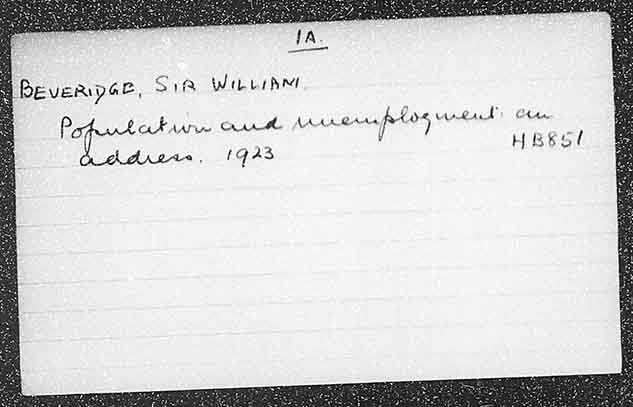 1A.
BEVERIDGE, SIR WILLIAM.
Population and unemployment: an
address. 1923 HB851